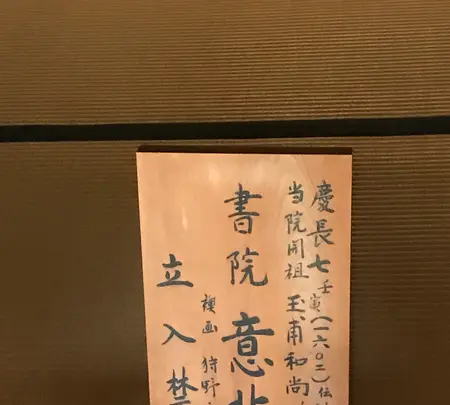 慶長七壬寅(一六〇二)伝
当院開祖 玉甫和尚
書院 意
襖画 狩野
立入禁